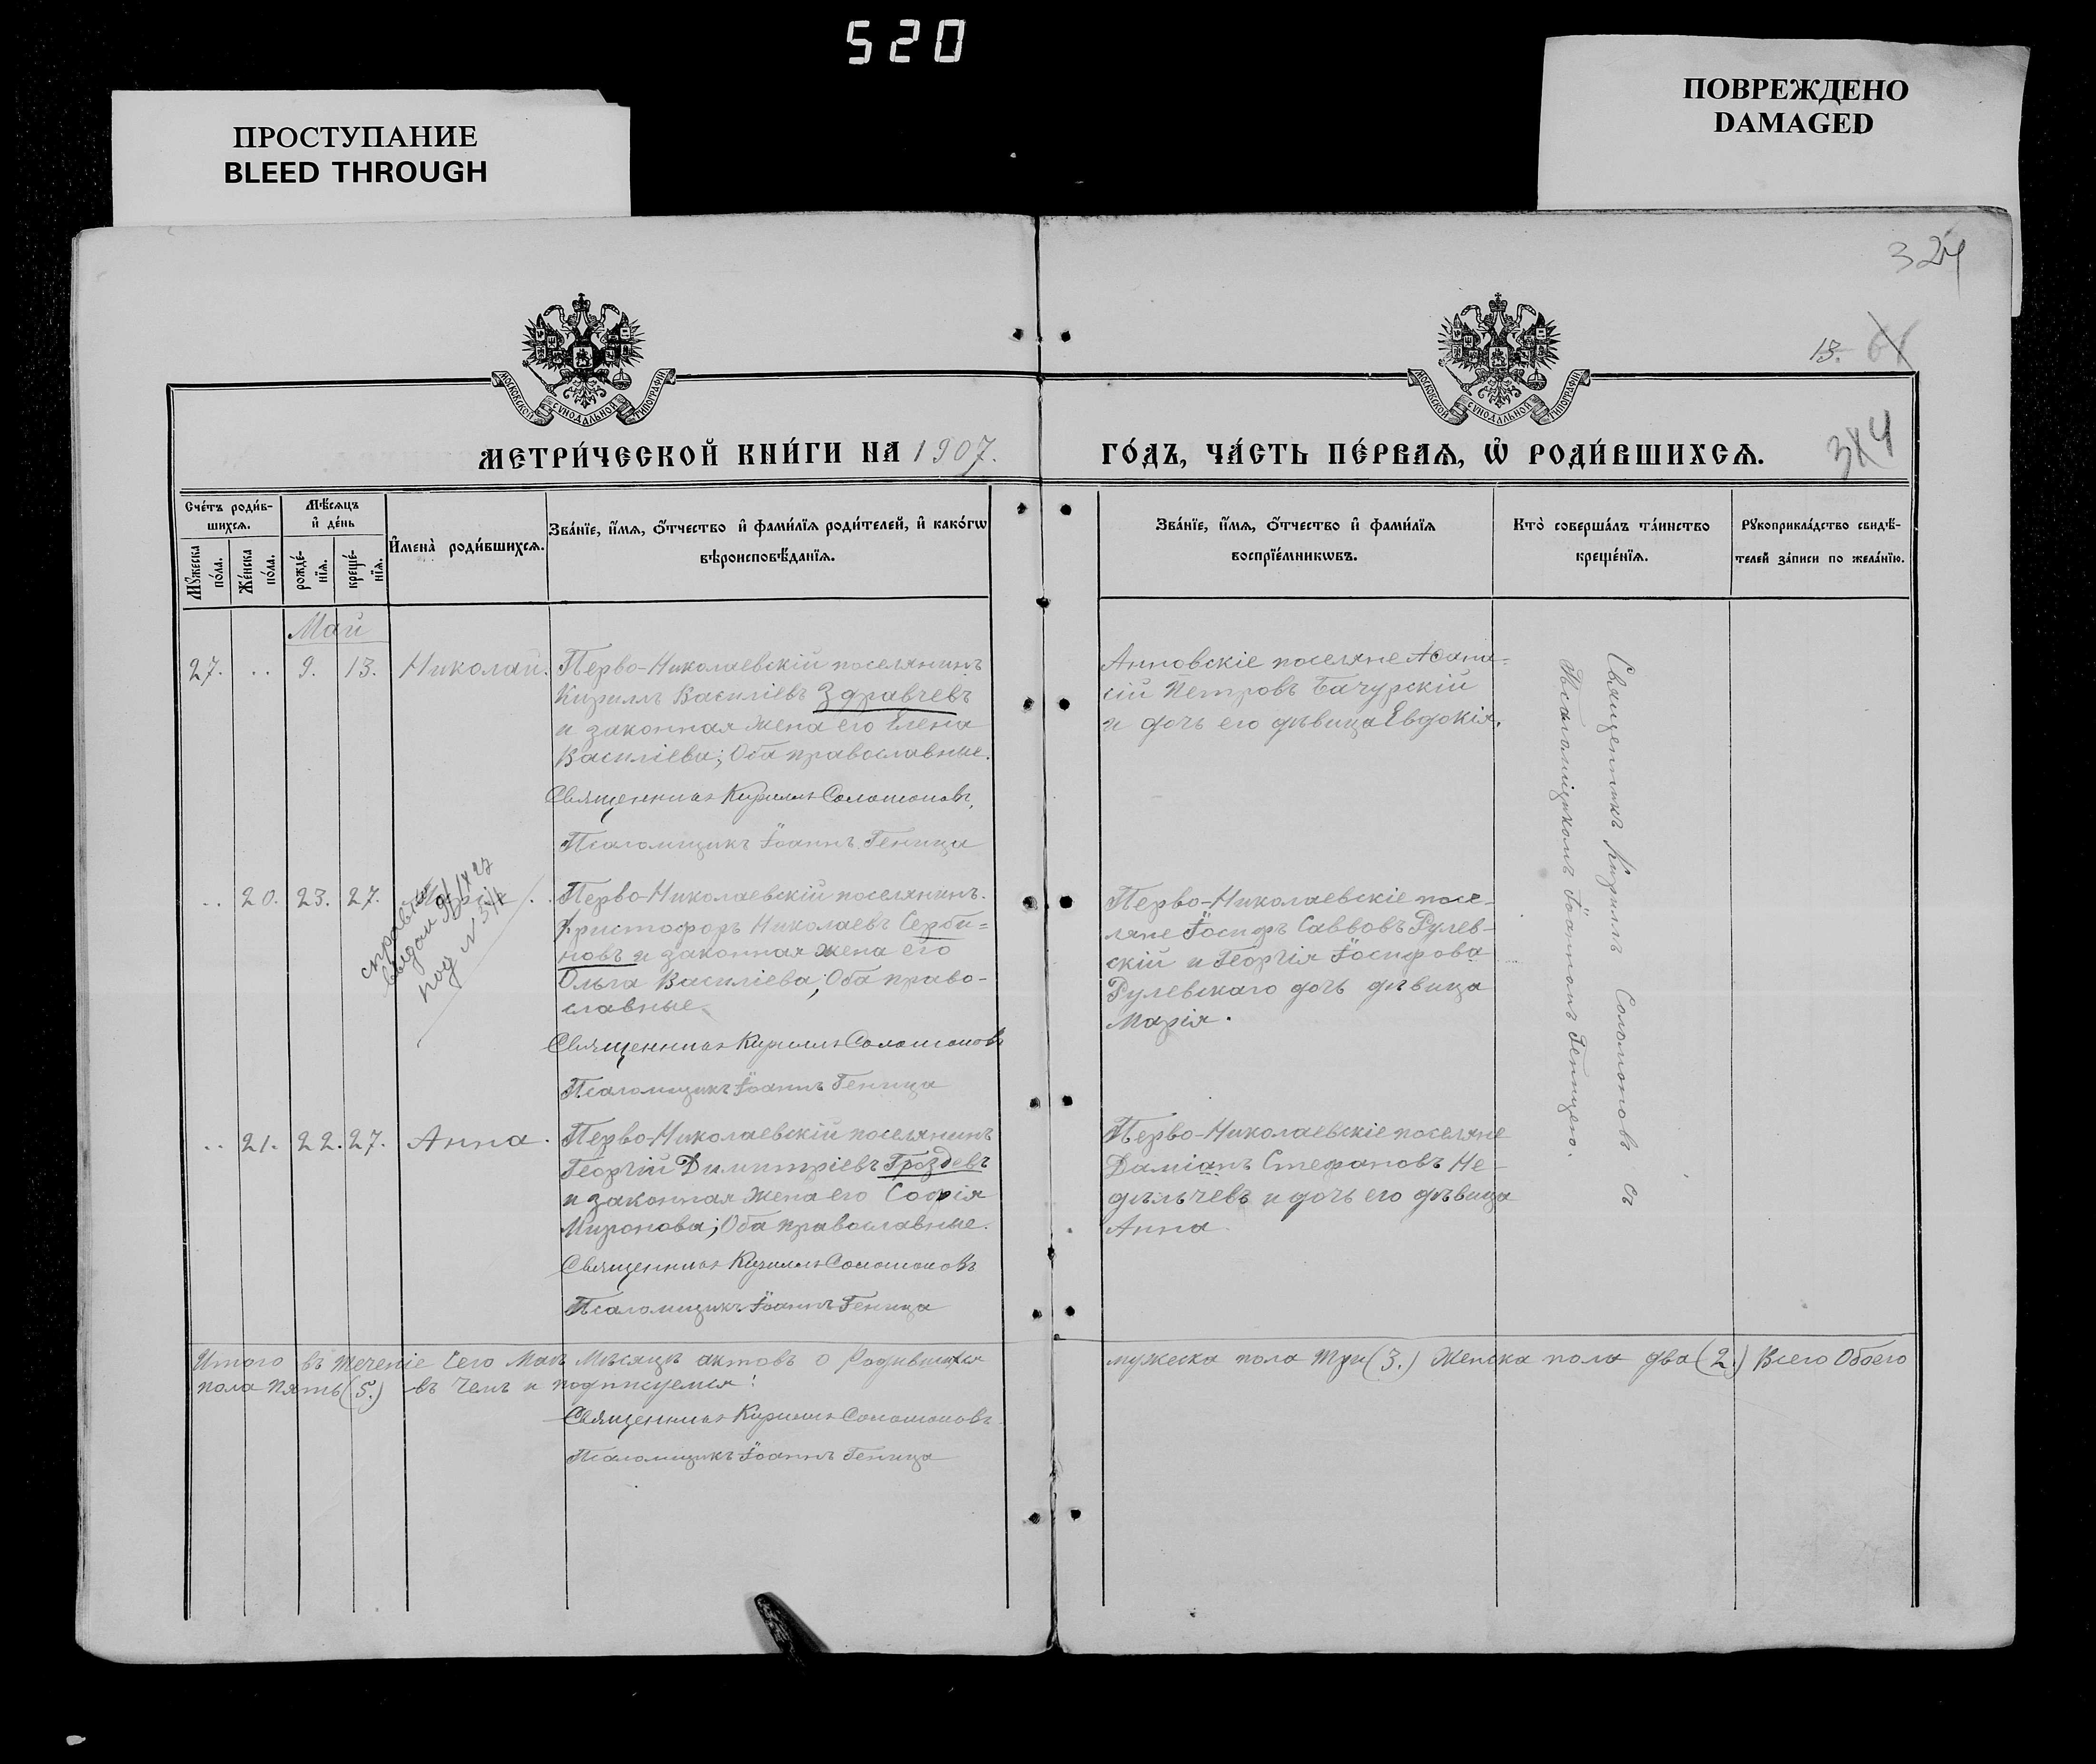 520
ПРОСТУПАНИЕ
BLEED THROUGH
ПОВРЕЖДЕНО
DAMAGED
324
13.
МОСКОВСКОЙ СѴНОДАЛЬНОЙ ТИПОГРАФІИ
МОСКОВСКОЙ СѴНОДАЛЬНОЙ ТИПОГРАФІИ
МЕТРИ́ЧЕСКОЙ КНИ́ГИ НА 1907.
ГО́ДЪ, ЧА́СТЬ ПЕ́РВАѦ, Ѡ҆ РОДИ́ВШИХСѦ.
Сче́тъ роди́в-
шихсѧ.
Мѣ́сѧцъ
и҆ де́нь
Мꙋ́жеска
по́ла.
Же́нска
по́ла.
рожде́-
нїѧ.
креще́-
нїѧ.
И҆мена̀ роди́вшихсѧ.
Зва́нїе, и҆́мѧ, ѻ҆́тчество и҆ фами́лїѧ роди́телей, и҆ како́гѡ
вѣроисповѣ́данїѧ.
Зва́нїе, и҆́мѧ, ѻ҆́тчество и҆ фами́лїѧ
воспрїе́мникѡвъ.
Кто̀ соверша́лъ та́инство
креще́нїѧ.
Рꙋкоприкла́дство свидѣ́-
телей за́писи по жела́нїю.
Май
27. .. 9. 13. Николай.
Перво-Николаевскій поселянинъ
Кириллъ Василіевъ Здравчевъ
и законная жена его Елена
Василіева; Оба православные.
Священникъ Кириллъ Соломоновъ
Псаломщикъ Іоаннъ Геница
Анновскіе поселяне Аѳана=
сій Петровъ Бачурскій
и дочь его дѣвица Евдокія.
Священникъ Кириллъ Соломоновъ съ
Псаломщикомъ Іоанномъ Геницею.
.. 20. 23. 27. Марія.
Перво-Николаевскій поселянинъ
Христофоръ Николаевъ Серби=
новъ и законная жена его
Ольга Василіева; Оба право-
славные.
Священникъ Кириллъ Соломоновъ
Псаломщикъ Іоаннъ Геница
Перво-Николаевскіе посе-
ляне Іосифъ Саввовъ Рулев-
скій и Георгія Іосифова
Рулевскаго дочь дѣвица
Марія.
.. 21. 22. 27. Анна.
Перво-Николаевскій поселянинъ
Георгій Димитріевъ Гроздевъ
и законная жена его Софія
Миронова; Оба православные.
Священникъ Кириллъ Соломоновъ
Псаломщикъ Іоаннъ Геница
Перво-Николаевскіе поселяне
Даміанъ Стефановъ Не-
дѣльчевъ и дочь его дѣвица
Анна.
Итого въ теченіе сего Мая Мѣсяца актовъ о Родившихся мужеска пола три (3.) Женска пола два (2.) Всего Обоего
пола пять (5.) въ чемъ и подписуемся:
Священникъ Кириллъ Соломоновъ
Псаломщикъ Іоаннъ Геница